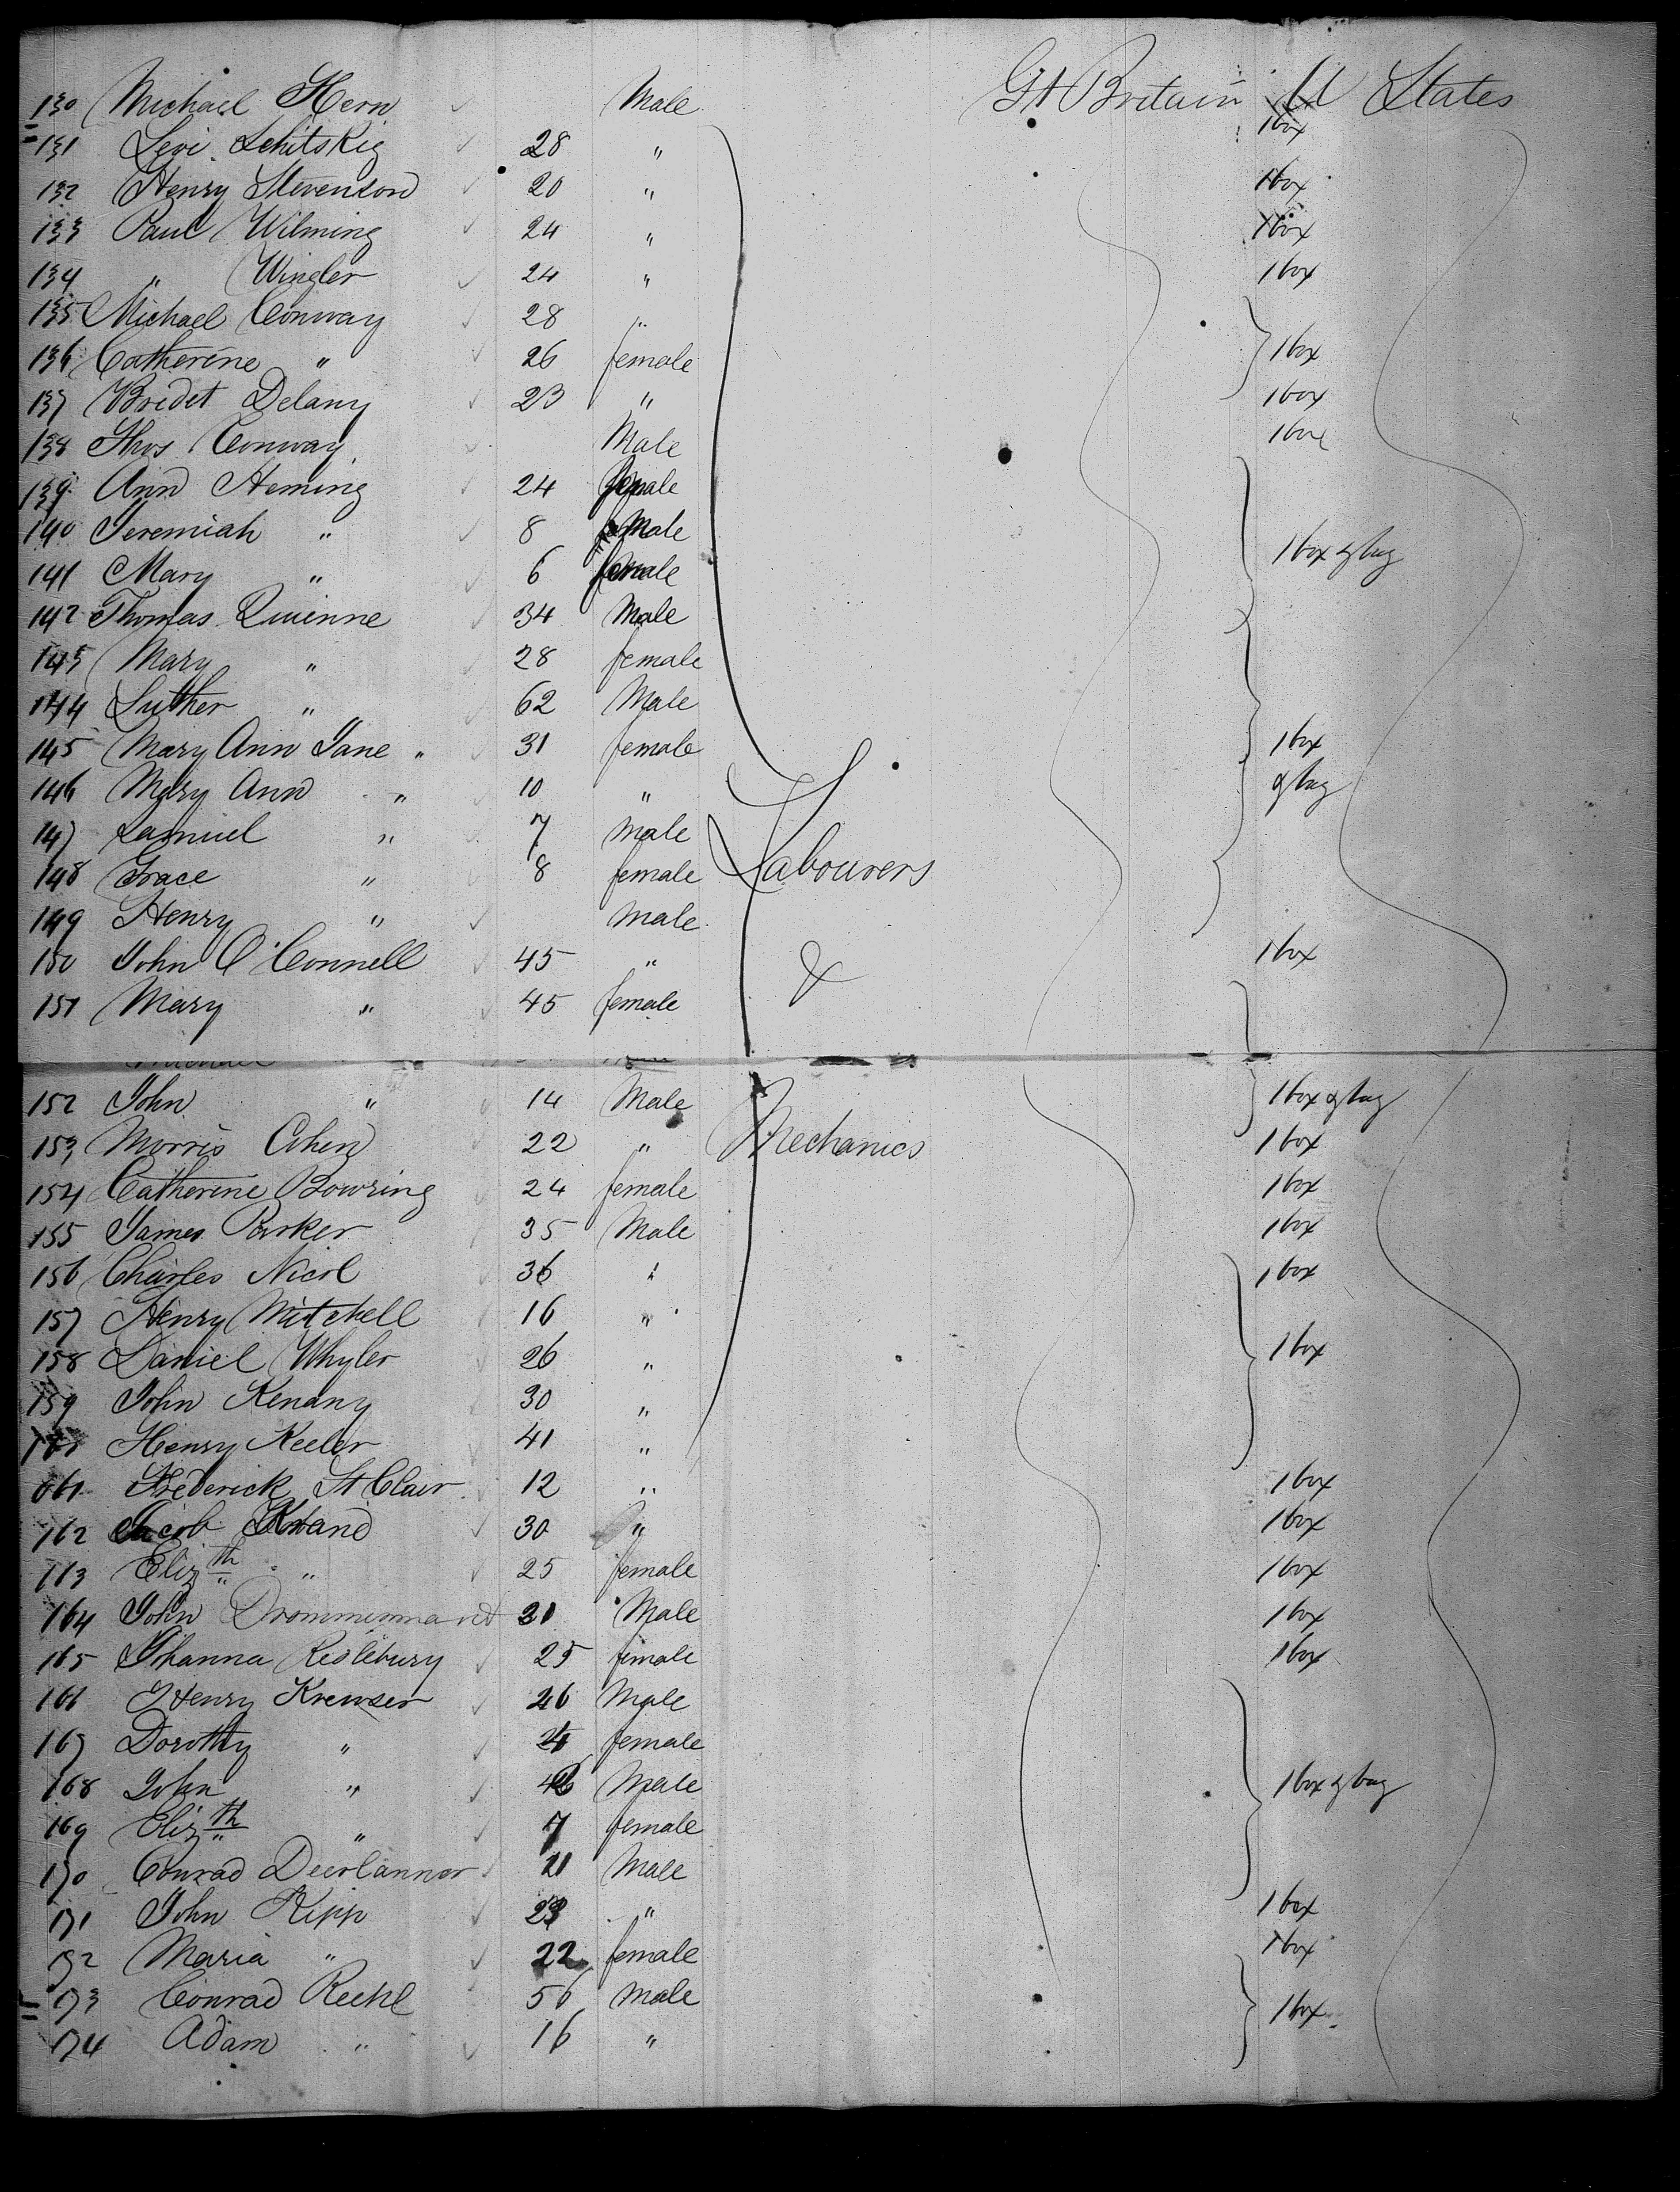 130 Michael Hern Male Gt Britain U States
131 Levi Schitskig 28 " 1 box
132 Henry Stevenson 20 " 1 box
133 Paul Wilming 24 " 1 box
134 " Wingler 24 " 1 box
135 Michael Conway 28 "
136 Catherine " 26 female 1 box
137 Bridet Delany 23 " 1 box
138 Thos Conway Male 1 box
139 Ann Heming 24 female
140 Jeremiah " 8 Male
141 Mary " 6 female 1 box & bag
142 Thomas Quinne 34 Male
143 Mary " 28 female
144 Luther " 62 Male
145 Mary Ann Jane " 31 female 1 box
146 Mary Ann " 10 " & bag
147 Samuel " 7 male
148 Grace " 8 female Labourers
149 Henry " male
150 John O'Connell 45 " & 1 box
151 Mary " 45 female
Michael
152 John " 14 Male 1 box & bag
153 Morris Cohen 22 " Mechanics 1 box
154 Catherine Bowring 24 female 1 box
155 James Parker 35 Male 1 box
156 Charles Nicol 36 " 1 box
157 Henry Mitchell 16 "
158 Daniel Whyler 26 " 1 box
159 John Kenany 30 "
Henry Keeler 41 "
161 Frederick St Clair 12 " 1 box
162 Jacob 30 " 1 box
113 Eliz th " 25 female 1 box
164 John 21 Male 1 box
165 Johanna Reslebury 25 female 1 box
166 Henry Krewser 26 Male
167 Dorothy " female
168 John " Male 1 box & bag
169 Eliz th " 7 female
170 Conrad Deerlannor 21 Male
171 John Kipp 23 " 1 box
172 Maria " 22 female 1 box
173 Conrad Reehl 56 male 1 box
174 Adam " 16 "